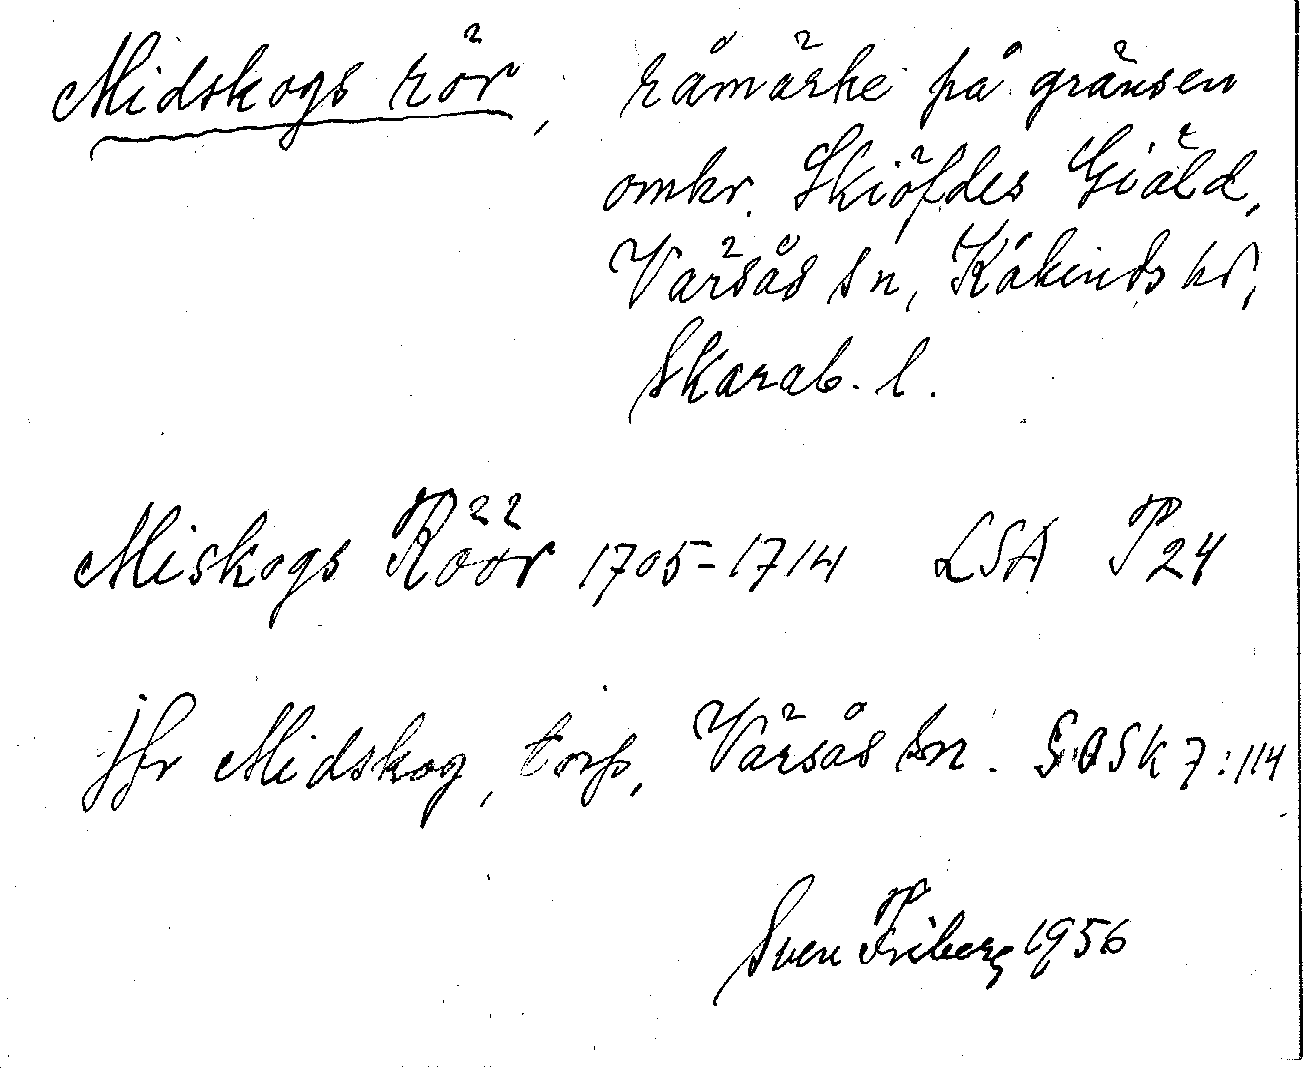 Midskogs rör, råmärke på gränsen
omkr. Skiöfdes Giäld,
Värsås sn, Kåkinds hd,
Skarab. l.
Miskogs Röör 1705-1714 LSA P24
jfr Midskog, torp, Värsås sn. SOSk 7:114
Sven Friberg 1956